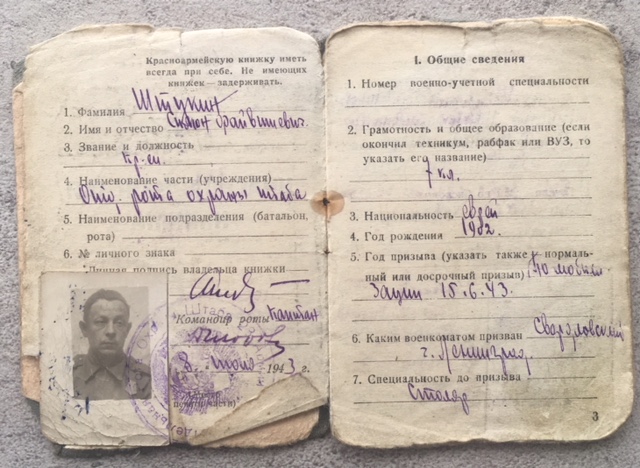 Красноармейскую книжку иметь
всегда при себе. Не имеющих
книжек — задерживать.
1. Фамилия Штукин
2. Имя и отчество
3. Звание и должность
кр-ец.
4. Наименование части (учреждения)
Отд. рота охраны штаба
5. Наименование подразделения (батальон,
рота)
6. № личного знака
Личная подпись владельца книжки
Командир роты Капитан
1943 г.
I. Общие сведения
1. Номер военно-учетной специальности
2. Грамотность и общее образование (если
окончил техникум, рабфак или ВУЗ, то
указать его название)
7 кл.
3. Национальность еврей
4. Год рождения 1902.
5. Год призыва (указать также нормаль-
ный или досрочный призыв) По мобили-
зации 15.6.43.
6. Каким военкоматом призван Свердловский
г. Ленинград.
7. Специальность до призыва
Столяр
3